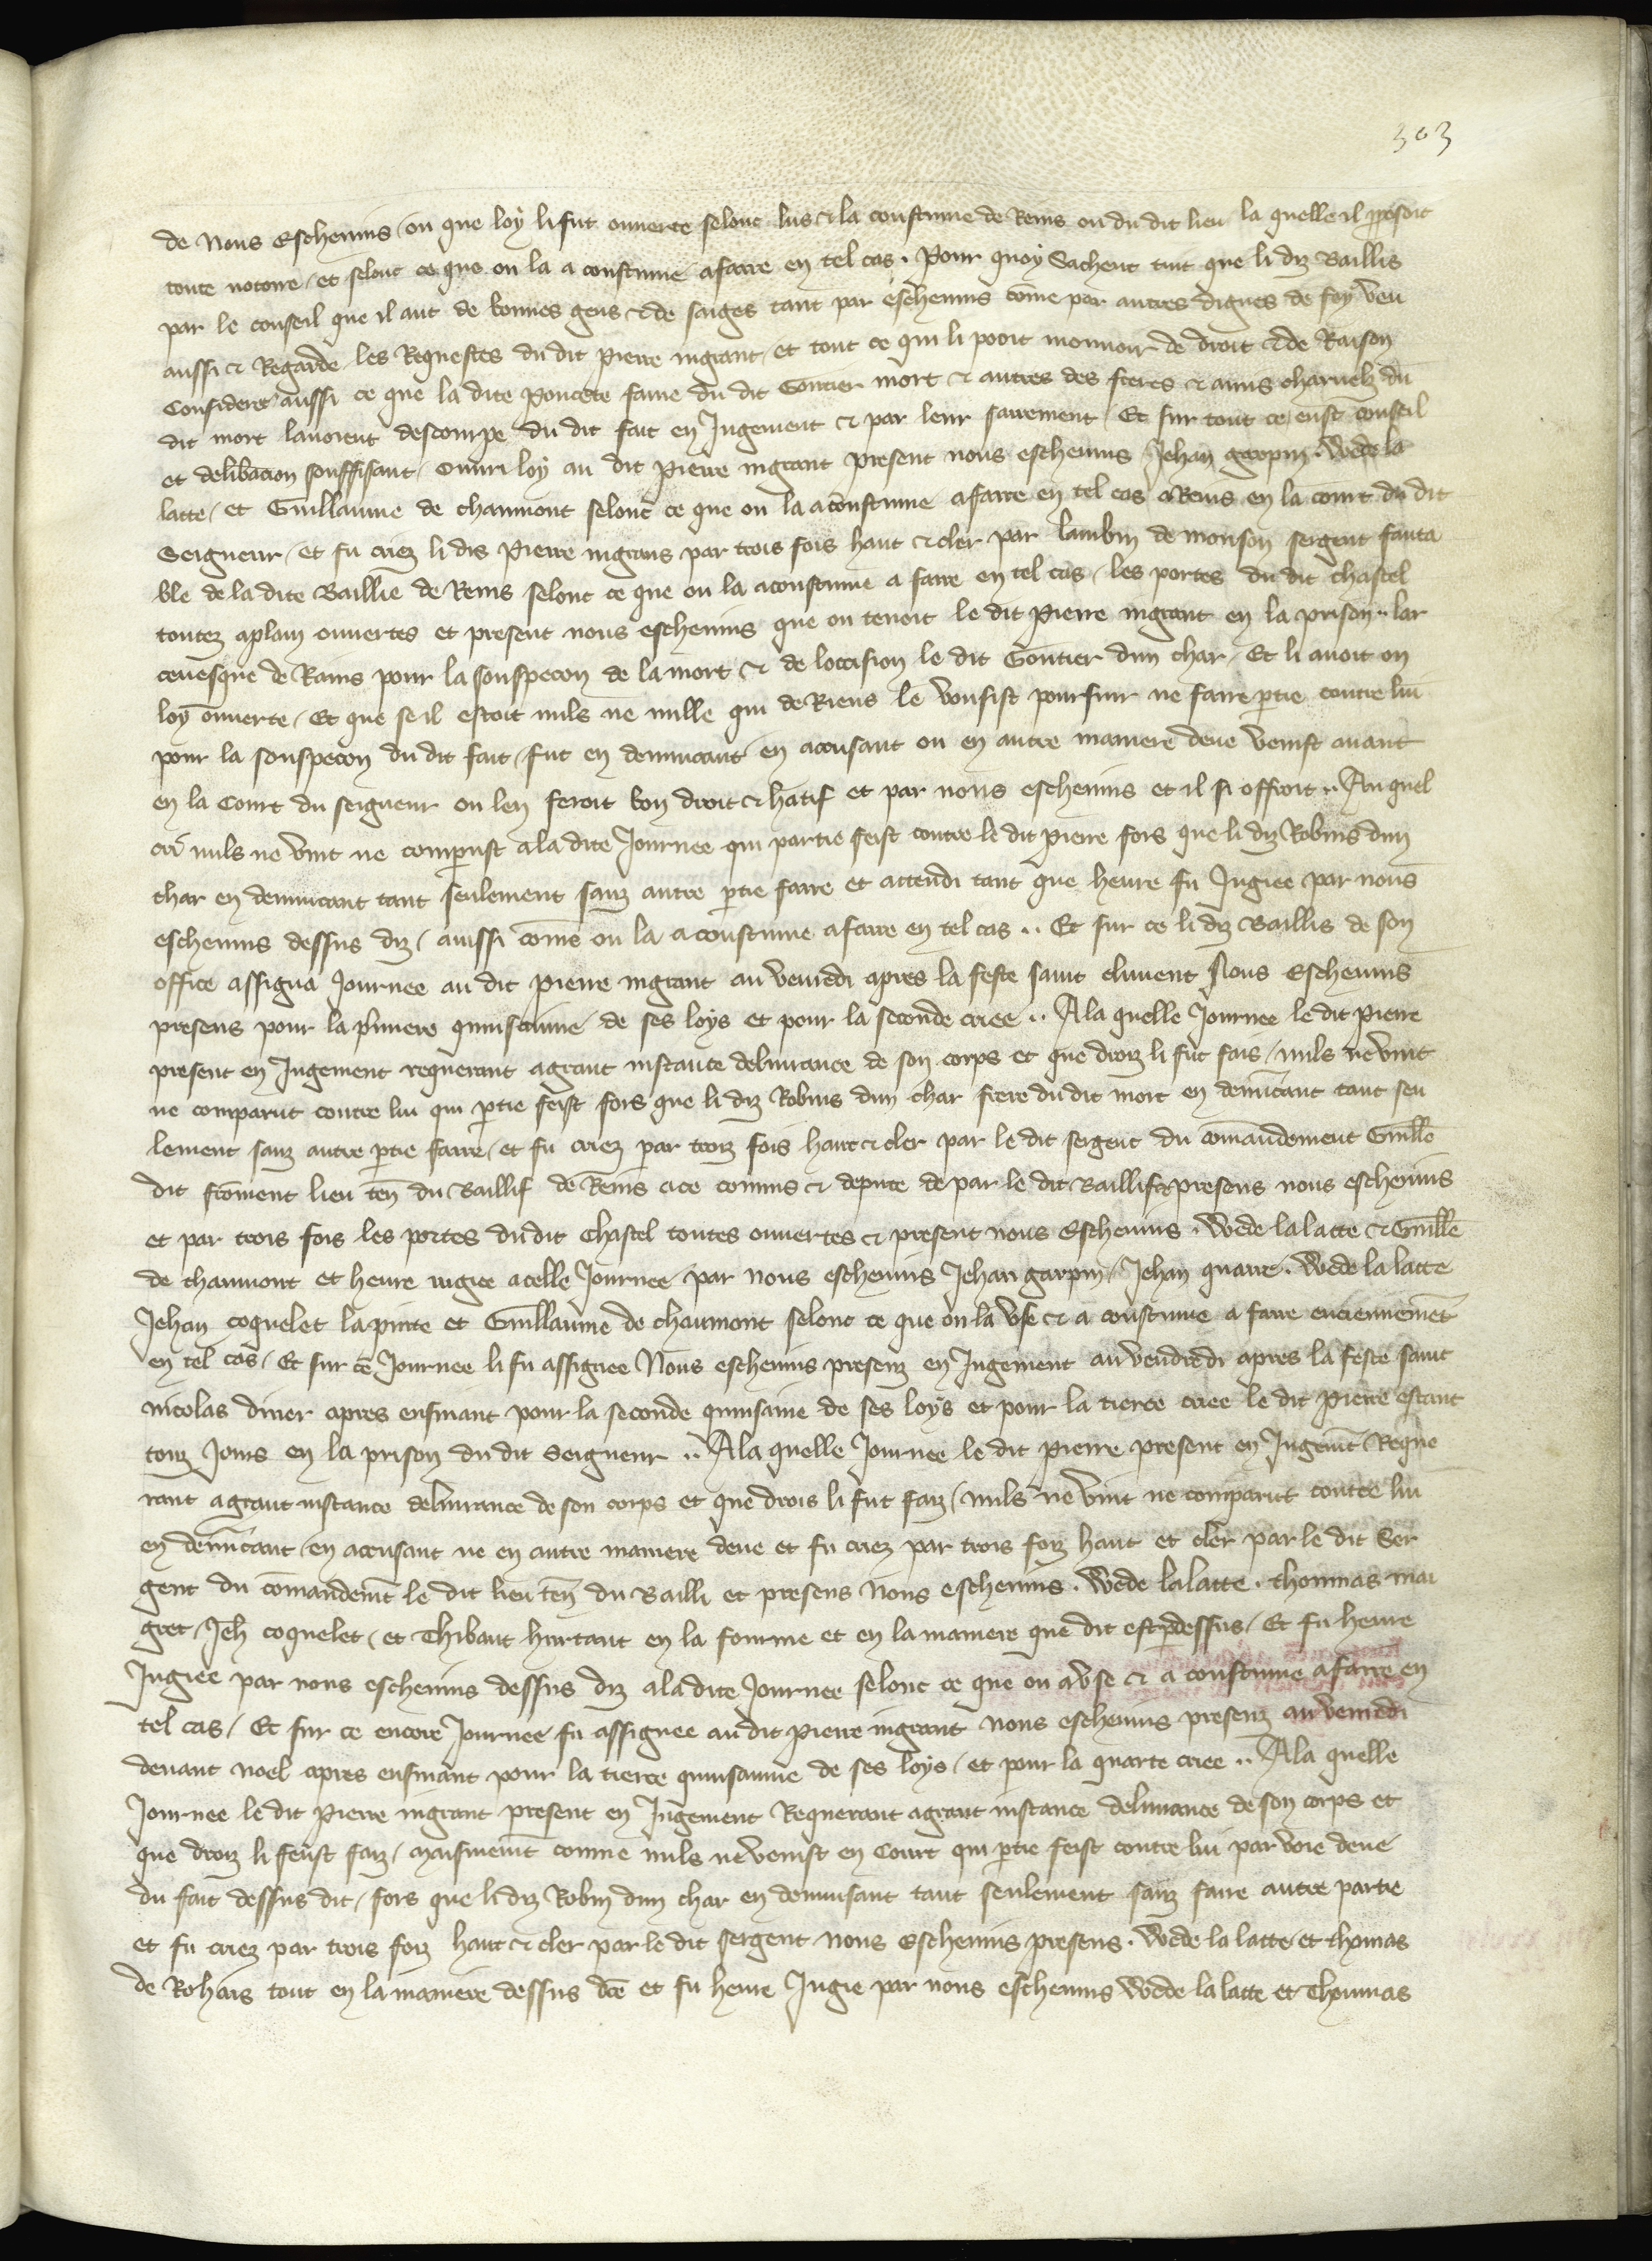 303
de nous eschevins ou que loy li fut ouverte selonc lus & la coustume de Reins ou du dit lieu la quelle il proposoit
toute notoire / et selonc ce que on la a coustumé a faire en tel cas . Pour quoy Sachent tuit que li diz Baillis
par le conseil que il aut de bonnes gens & de saiges tant par eschevins cōme par autres dignes de foy veu
aussi & Regarde les Requestes du dit Pierre ingrant / et tout ce qui li pooit mouvoir de droit & de Raison
Considere aussi ce que la dite Poncete fame du dit Gontier mort & autres des freres & amis charnelz du
dit mort lavoient descoupe du dit fait en Jugement & par leur sairement / Et sur tout ce eust conseil
et delibacion souffisant / ouvri loy au dit Pierre ingrant present nous eschevins Jehan garpin . Wede la
latte / et Guillaume de chaumont selonc ce que on la acoustume a faire en tel cas a Reins en la court du dit
Seigneur / et fu criez li dis Pierre ingrans par trois fois haut & cler par lambin de mouson sergent fauta
ble de la dite Baillie de Reins selonc ce que on la acoustume a faire en tel cas / les portes du dit chastel
toutez aplain ouvertes et present nous eschevins que on tenoit le dit Pierre ingrant en la prison .. lar
cevesque de Rains pour la souspecon de la mort & de loccision le dit Gontier dun char / Et li avoit on
loy ouverte / Et que se il estoit nuls ne nulle qui de Riens le vousist poursuir ne faire ptie contre lui
pour la souspecon du dit fait / fut en denuncant en accusant ou en autre maniere deue venist avant
en la Court du seigneur on len feroit bon droit & hatif et par nous eschevins et il si offroit .. Au quel
cri nuls ne vint ne comparust a la dite Journee qui partie feist contre le dit Pierre fors que li diz Robins dun
char en denuncant tant seulement sanz autre ptie faire et attendi tant que heure fu Jugiee par nous
eschevins dessus diz / aussi cōme on la acoustume a faire en tel cas .. Et sur ce li diz Baillis de son
office assigna Journee au dit Pierre ingrant au venredi apres la feste saint climent Nous Eschevins
presens pour la pmiere quinsainne de ses loys et pour la seconde criee .. A la quelle Journee le dit Pierre
present en Jugement requerant a grant instance delivrance de son corps et que droiz li fut fais / nuls ne vint
ne comparut contre lui qui ptie feist fors que li diz Robins dun char frere du dit mort en denūcant tant seu
lement sanz autre ptie faire / et fu criez par troiz fois haut & cler par le dit sergent du cōmandement Guille
dit froment lieu ten du Baillif de Reins a ce commis & depute de par le dit Baillif & presens nous eschevins
et par trois fois les portes du dit Chastel toutes ouvertes & present nous Eschevins . Wede la latte & Guille
de chaumont et heure iugiee a celle Journee par nous eschevins Jehan garpin / Jehan quarre . Wede la latte
Jehan coquelet la pinte et Guillaume de chaumont selonc ce que on la use & a coustume a faire enciennemēt
en tel cas / Et sur ce Journee li fu assignee Nous eschevins presenz en Jugement au vendredi apres la feste saint
nicolas diver apres ensivant pour la seconde quinsaine de ses loys et pour la tierce criee le dit Pierre estant
touz Jours en la prison du dit Seigneur .. A la quelle Journee le dit Pierre present en Jugemēt Reque
rant a grant instance delivrance de son corps et que drois li fut faiz / nuls ne vint ne comparut contre lui
en denūcant / en accusant ne en autre maniere deue et fu criez par trois foiz haut et cler par le dit Ser
gent du cōmandemēt le dit lieu ten du Bailli et presens nous eschevins . Wede la latte . thommas mai
gret / Jeh coquelet / et Thibaut hurtaut en la fourme et en la maniere que dit est p dessus / Et fu heure
Jugiee par nous eschevins dessus diz a la dite Journee selonc ce que on a use & a coustume a faire en
tel cas / Et sur ce encore Journee fu assignee au dit Pierre ingrant nous eschevins presenz au venredi
devant Noel apres ensivant pour la tierce quinsainne de ses loys / et pour la quarte criee .. A la quelle
Journee le dit Pierre ingrant present en Jugement Requerant a grant instance delivrance de son corps et
que droiz li feust faiz / maismemt comme nuls ne venist en Court qui ptie feist contre lui par voie deue
du fait dessus dit / fors que li diz Robin dun char en denunsant tant seulement sanz faire autre partie
et fu criez par trois foiz haut & cler par le dit sergent nous Eschevins presens . Wede la latte et thomas
de Rohais tout en la maniere dessus dce et fu heure Jugie par nous eschevins Wede la latte et Thoumas